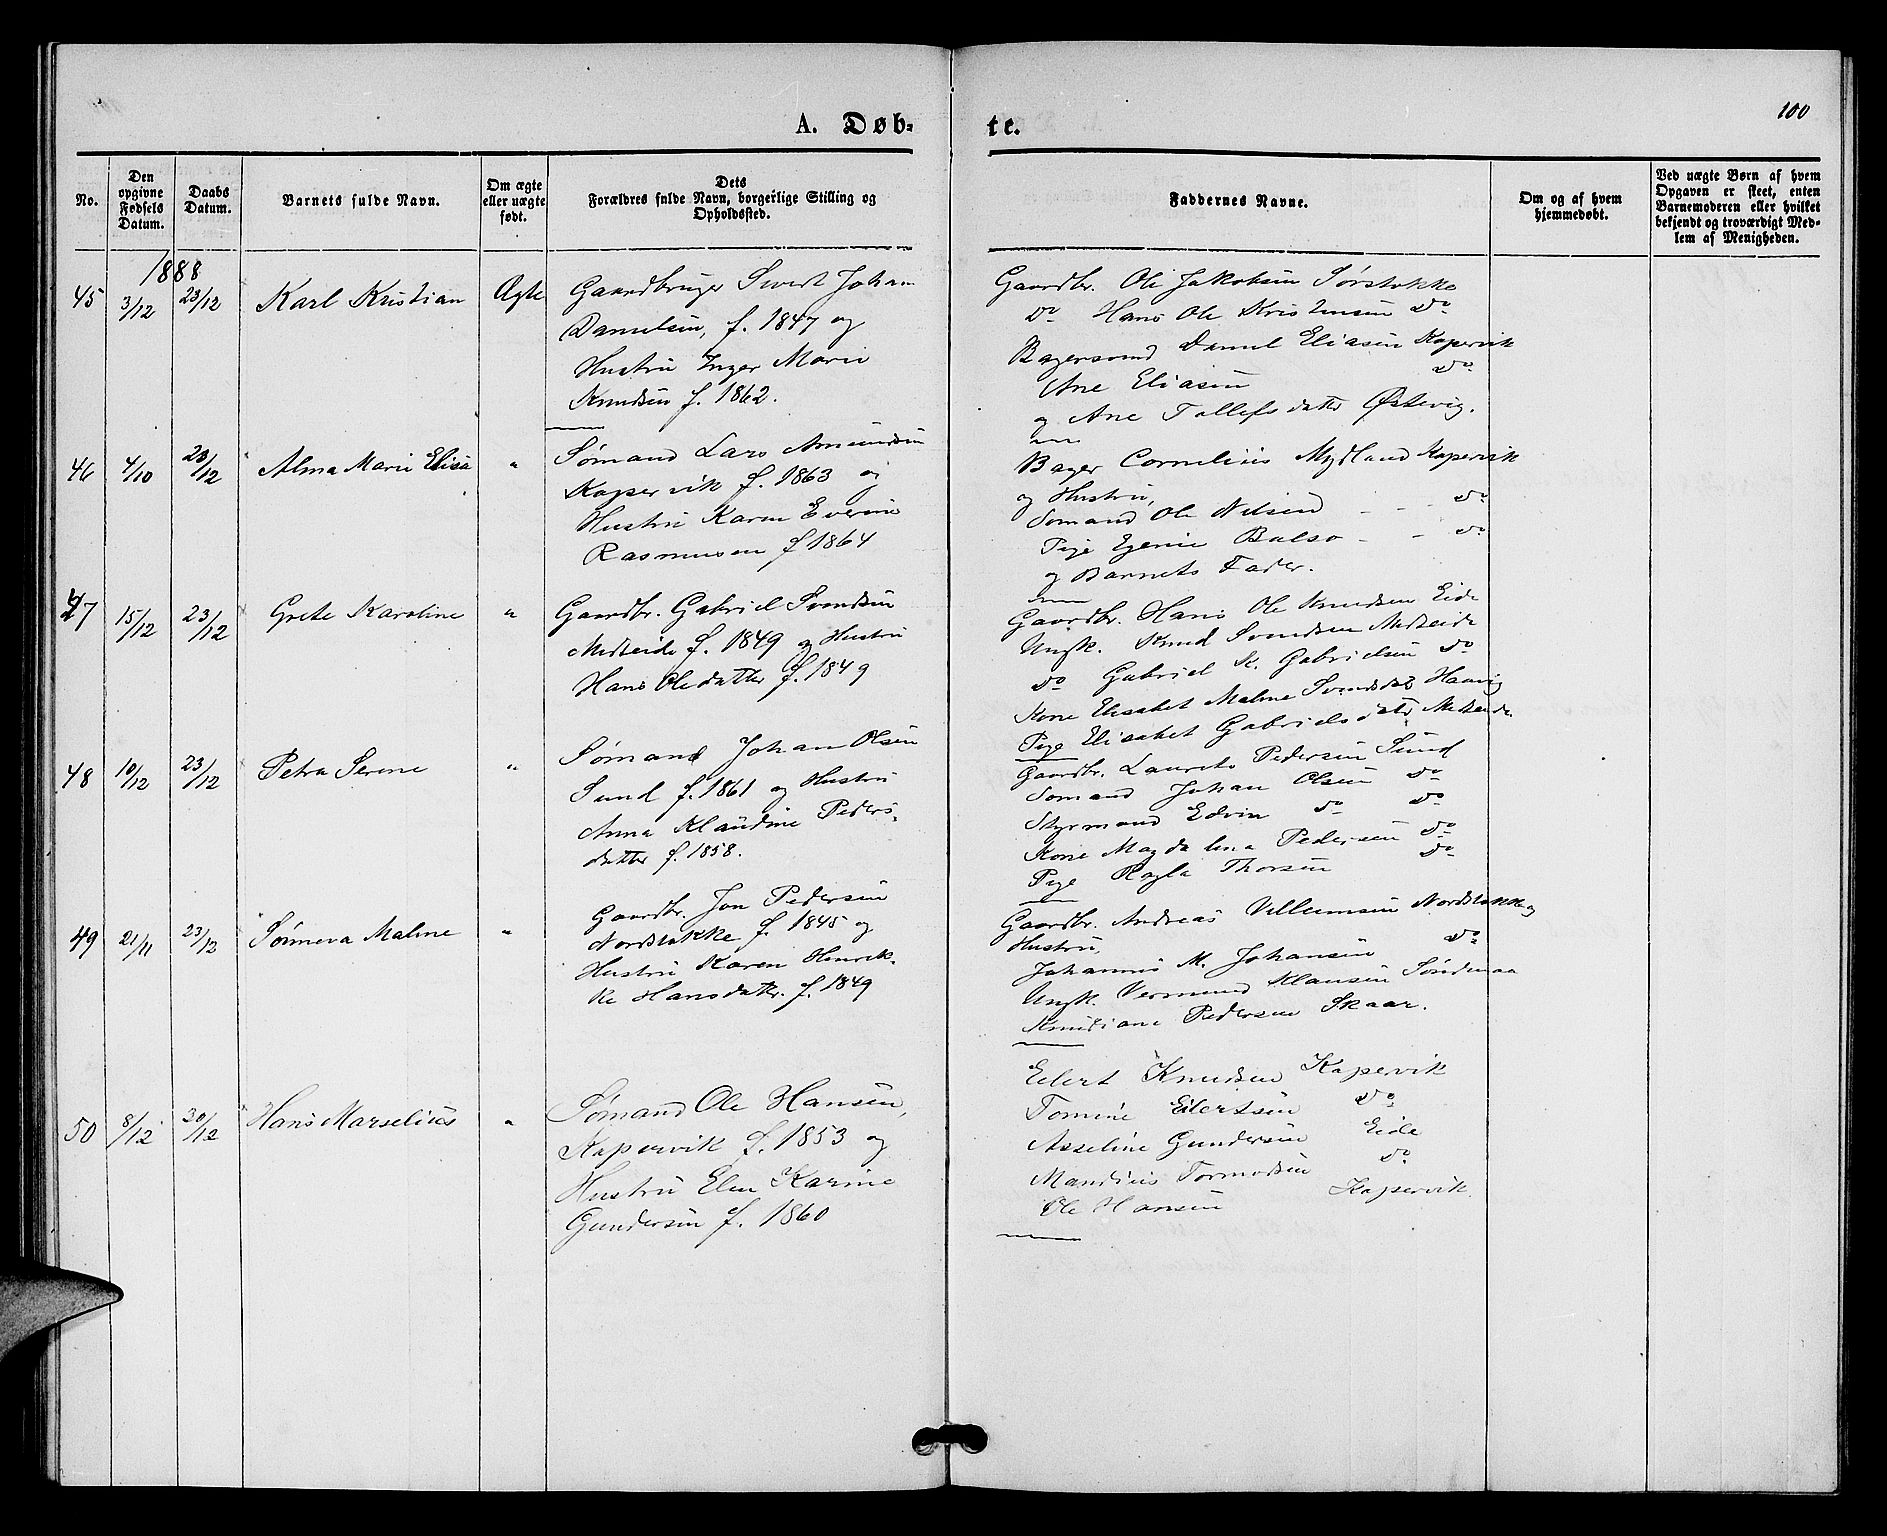 100
A. Døb-
te.
No.
Den
opgivne
Fødsels
Datum.
Daabs
Datum.
Barnets fulde Navn.
Om ægte
eller uægte
født.
Dets
Forældres fulde Navn, borgerlige Stilling og
Opholdssted.
Faddernes Navne.
Om og af hvem
hjemmedøbt.
Ved uægte Børn af hvem
Opgaven er skeet, enten
Barnemoderen eller hvilket
bekjendt og troværdigt Med-
lem af Menigheden.
1888
45 3/12 23/12 Karl Kristian Ægte
Gaardbruger Sivert Johan
Danielsen, f. 1847 og
Hustru Inger Marie
Knudsen f. 1862.
Gaardbr. Ole Jakobsen Sørstokke
Do Hans Ole Kristensen Do
Bagersvend Daniel Eliasen Kopervik
Ane Eliasen Do
og Ane Tollefsdatter Østevig.
46 4/10 23/12 Alma Marie Elisa "
Sømand Lars Amundsen
Kopervik f. 1863 og
Hustru Karen Everine
Rasmussen f 1864
Bager Cornelius Mydland Kopervik
og Hustru,
Sømand Ole Nilsen - - - Do
Pige Egenie Balso - - Do
og Barnets Fader.
47 15/12 23/12 Grete Karoline "
Gaardbr. Gabriel Svendsen
Medseide f. 1849 og Hustru
Hans Oledatter f. 1849
Gaardbr. Hans Ole Knudsen Eide
Ungk. Knud Svendsen Medseide
Do Gabriel K. Gabrielsen Do
Kone Elisabet Malene Svendsdatr Haavig
Pige Elisabet Gabrielsdatr Medseide
48 10/12 23/12 Petra Serine "
Sømand Johan Olsen
Sund f. 1861 og Hustru
Anna Klaudine Peders-
datter f. 1858.
Gaardbr. Laurets Pedersen Sund
Sømand Johan Olsen Do
Styrmand Edvin Do Do
Kone Magdalena Pedersen Do
Pige Ragla Thorsen Do
49 21/11 23/12 Sønneva Malene "
Gaardbr. Jon Pedersen
Nordstokke f. 1845 og
Hustru Karen Henrik-
ke Hansdatter. f. 1849
Gaardbr. Andreas Villumsen Nordstokke og
Hustru,
Johannes M. Johansen Do
Ungk. Vermund Klausen Søndenaa
Knudiane Pedersen Skaar.
50 8/12 30/12 Hans Marselius "
Sømand Ole Hansen,
Kopervik f. 1853 og
Hustru Elen Karine
Gundersen f. 1860
Eilert Knudsen Kopervik
Tomine Eilertsen Do
Asseline Gundersen Eide
Mandius Tormodsen Do
Ole Hansen Kopervik